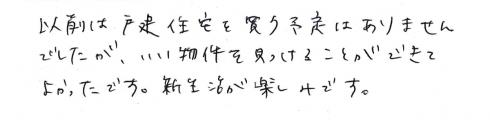 以前は戸建住宅を買う予定はありません
でしたが、いい物件を見つけることができて
よかったです。新生活が楽しみです。